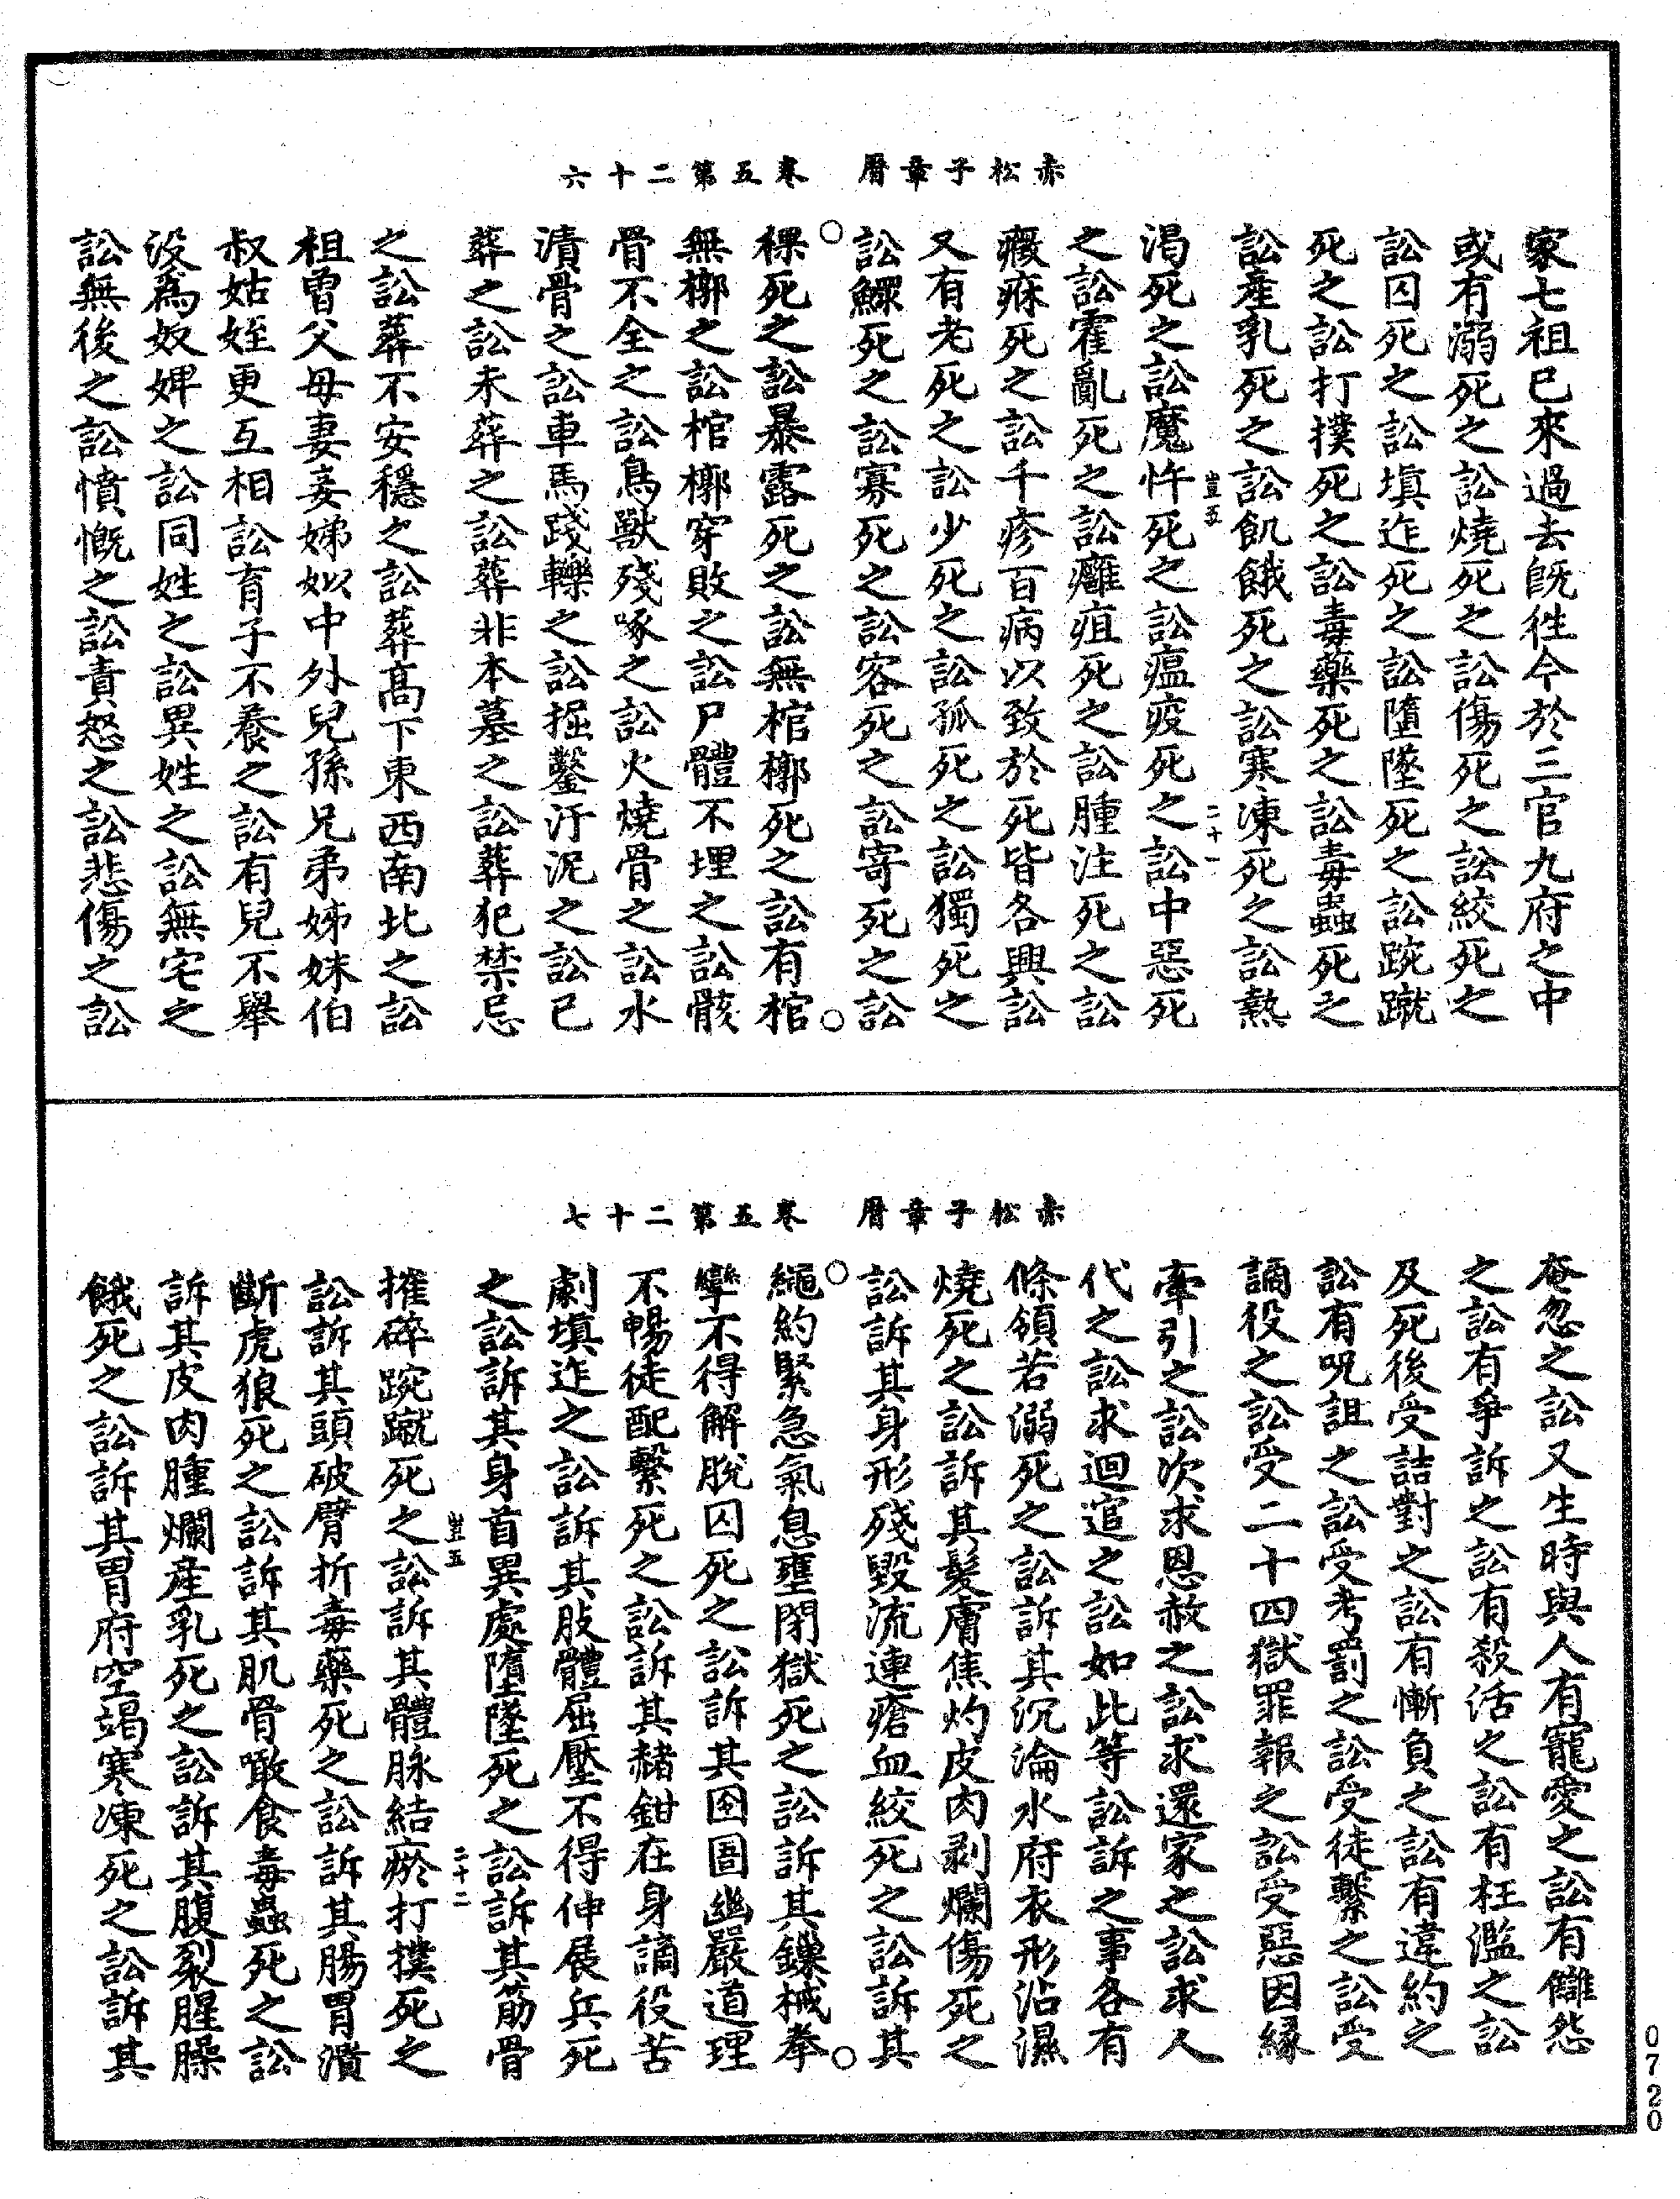 赤松子章曆　卷五第二十六
家七祖已來過去旣徃今於三官九府之中
或有溺死之訟燒死之訟傷死之訟絞死之
訟囚死之訟塡迮死之訟墮墜死之訟踠蹴
死之訟打撲死之訟毒藥死之訟毒蟲死之
訟產乳死之訟飢餓死之訟寒凍死之訟熱
豈五　二十一
渴死之訟魔忤死之訟瘟疫死之訟中惡死
之訟霍亂死之訟癰疽死之訟腫注死之訟
癥痳死之訟千疹百病以致於死皆各興訟
又有老死之訟少死之訟孤死之訟獨死之
訟鰥死之訟寡死之訟客死之訟寄死之訟
稞死之訟暴露死之訟無棺槨死之訟有棺
無槨之訟棺槨穿敗之訟尸體不埋之訟骸
骨不全之訟鳥獸殘啄之訟火燒骨之訟水
漬骨之訟車馬踐轢之訟掘鑿汙泥之訟已
葬之訟未葬之訟葬非本墓之訟葬犯禁忌
之訟葬不安穩之訟葬高下東西南北之訟
祖曾父母妻妾娣姒中外兒孫兄弟姊妹伯
叔姑姪更互相訟育子不養之訟有兒不舉
沒爲奴婢之訟同姓之訟異姓之訟無宅之
訟無後之訟憤慨之訟責怒之訟悲傷之訟
赤松子章曆　卷五第二十七
奄忽之訟又生時與人有寵愛之訟有讎怨
之訟有爭訴之訟有殺活之訟有枉濫之訟
及死後受詰對之訟有慚負之訟有違約之
訟有呪詛之訟受考罰之訟受徒繫之訟受
謫役之訟受二十四獄罪報之訟受惡因緣
牽引之訟次求恩赦之訟求還家之訟求人
代之訟求迴逭之訟如此等訟訴之事各有
條領若溺死之訟訴其沉淪水府衣形沾濕
燒死之訟訴其髮膚焦灼皮肉剥爛傷死之
訟訴其身形殘毀流連瘡血絞死之訟訴其
繩約緊急氣息壅閉獄死之訟訴其鏁械拳
攣不得解脫囚死之訟訴其囹圄幽嚴道理
不暢徒配繫死之訟訴其赭鉗在身謫役苦
劇塡迮之訟訴其肢體屈壓不得伸展兵死
之訟訴其身首異處墮墜死之訟訴其筋骨
豈五　二十二
摧碎踠蹴死之訟訴其體脉結瘀打撲死之
訟訴其頭破臂折毒藥死之訟訴其腸胃潰
斷虎狼死之訟訴其肌骨噉食毒蟲死之訟
訴其皮肉腫爛產乳死之訟訴其腹裂腥臊
餓死之訟訴其胃府空竭寒凍死之訟訴其
0720